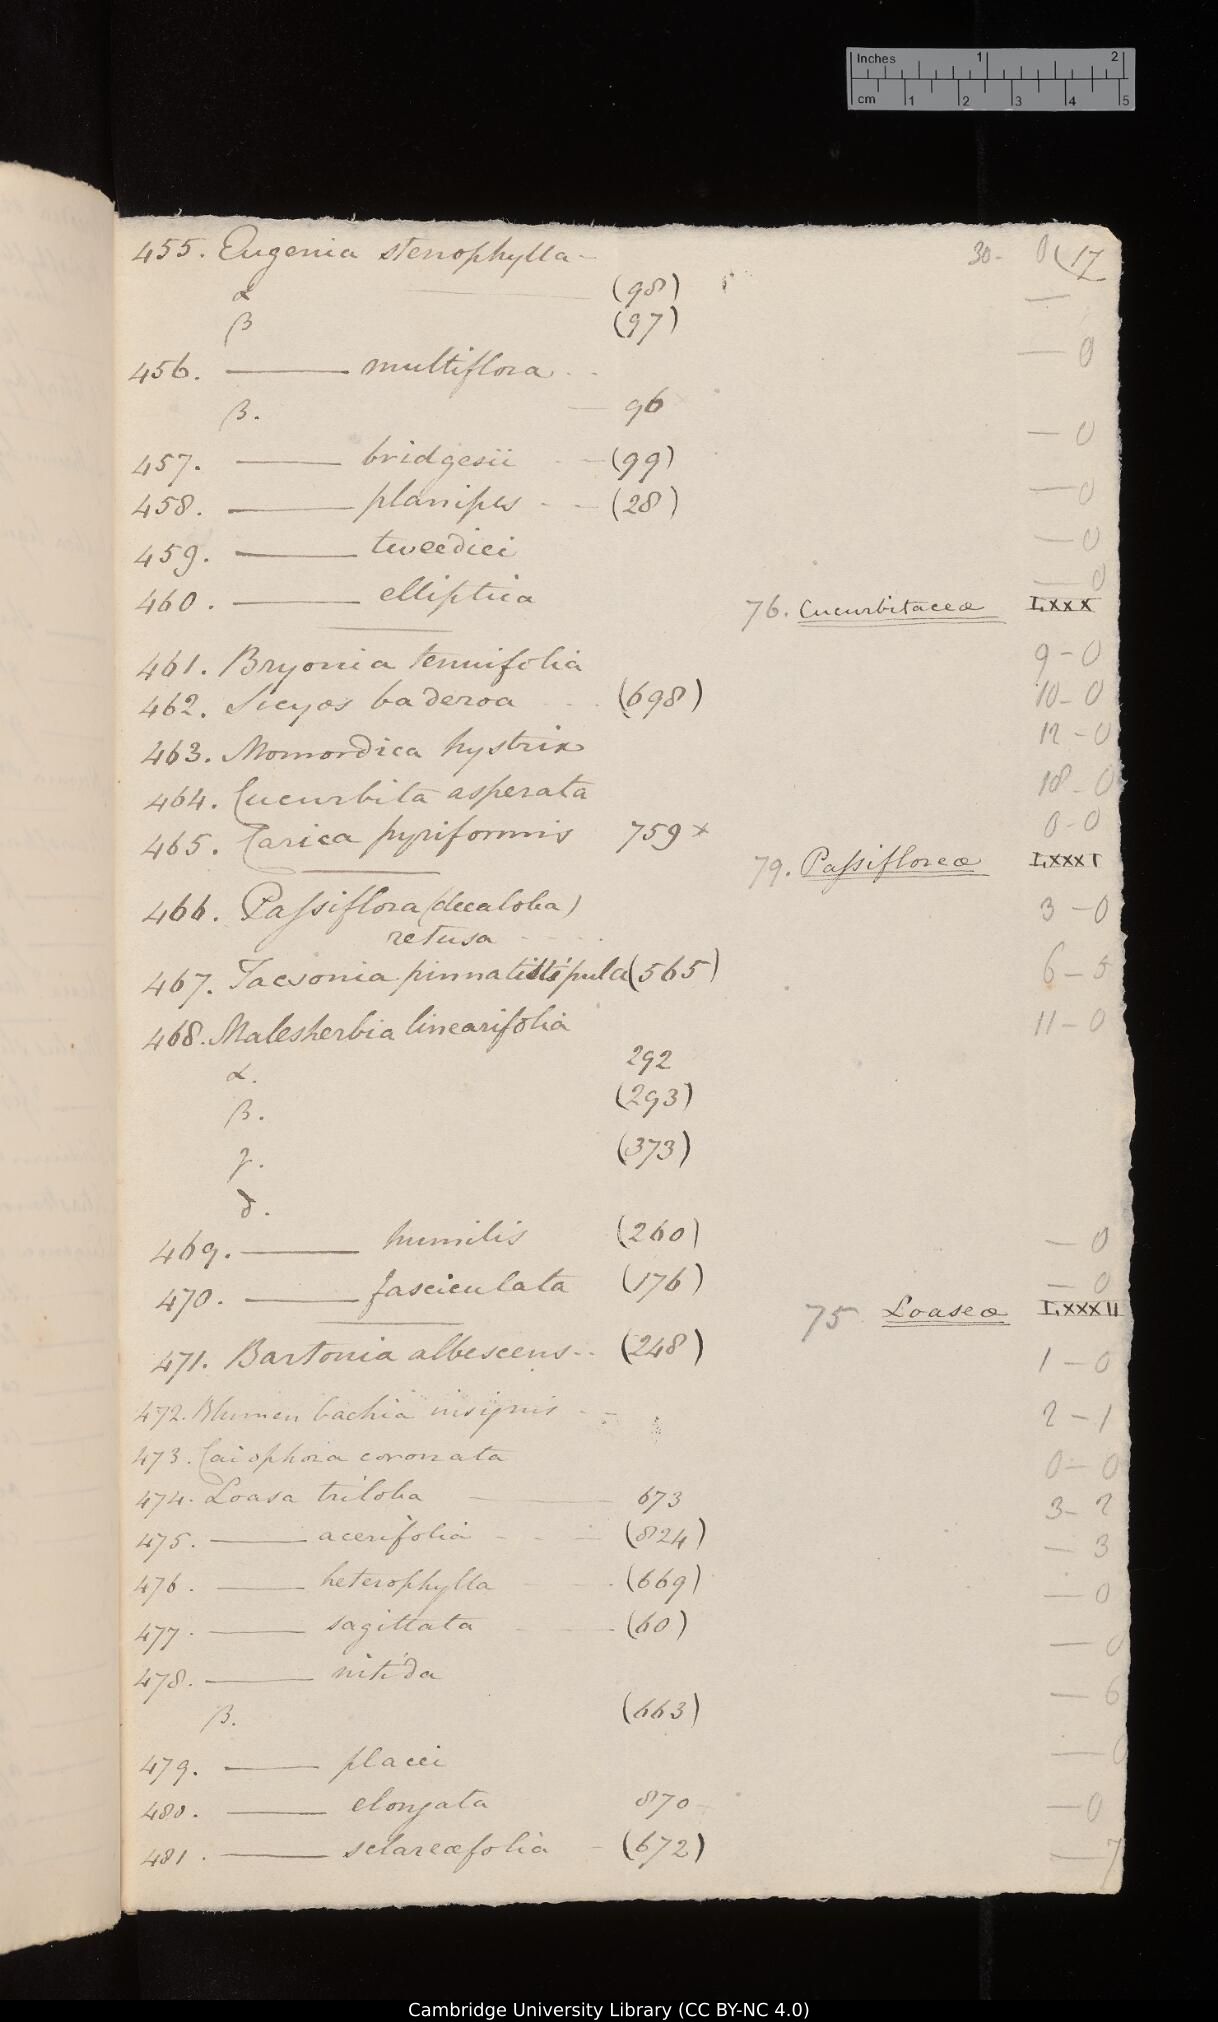 Inches 1 2
cm 1 2 3 4 5
455. Eugenia stenophylla - 30- 0 (17
α (98) —
β (97)
456. ——— multiflora - - — 0
β. — 96
457. ——— bridgesii - — (99) — 0
458. ——— planipes - - (28) — 0
459. ——— tweediei — 0
460. ——— elliptica — 0
76. Cucurbitaceæ LXXX
461. Bryonia tenuifolia 9-0
462. Sicyos baderoa - - - (698) 10-0
463. Momordica hystrix 12-0
464. Cucurbita asperata 18-0
465. Carica pyriformis 759 x 0-0
79. Paſsifloreæ LXXXI
466. Paſsiflora (decaloba) 3-0
retusa - - -
467. Tacsonia pinnatistipula (565) 6-5
468. Malesherbia linearifolia 11-0
α. 292
β. (293)
γ. (373)
δ.
469. ——— humilis (260) — 0
470. ——— fasciculata (176) — 0
75 Loaseæ LXXXII
471. Bartonia albescens - - (248) 1-0
472. Blumenbachia insignis - - 2-1
473. Caiophora coronata 0-0
474. Loasa triloba ——— 673 3-2
475. ——— acerifolia - - - (824) — 3
476. ——— heterophylla - - (669) — 0
477. ——— sagittata - — (60) — 0
478. ——— nitida — 6
β. (663)
479. ——— placei — 0
480. ——— elongata 870 — 0
481. ——— sclareæfolia - (672) — 7
Cambridge University Library (CC BY-NC 4.0)